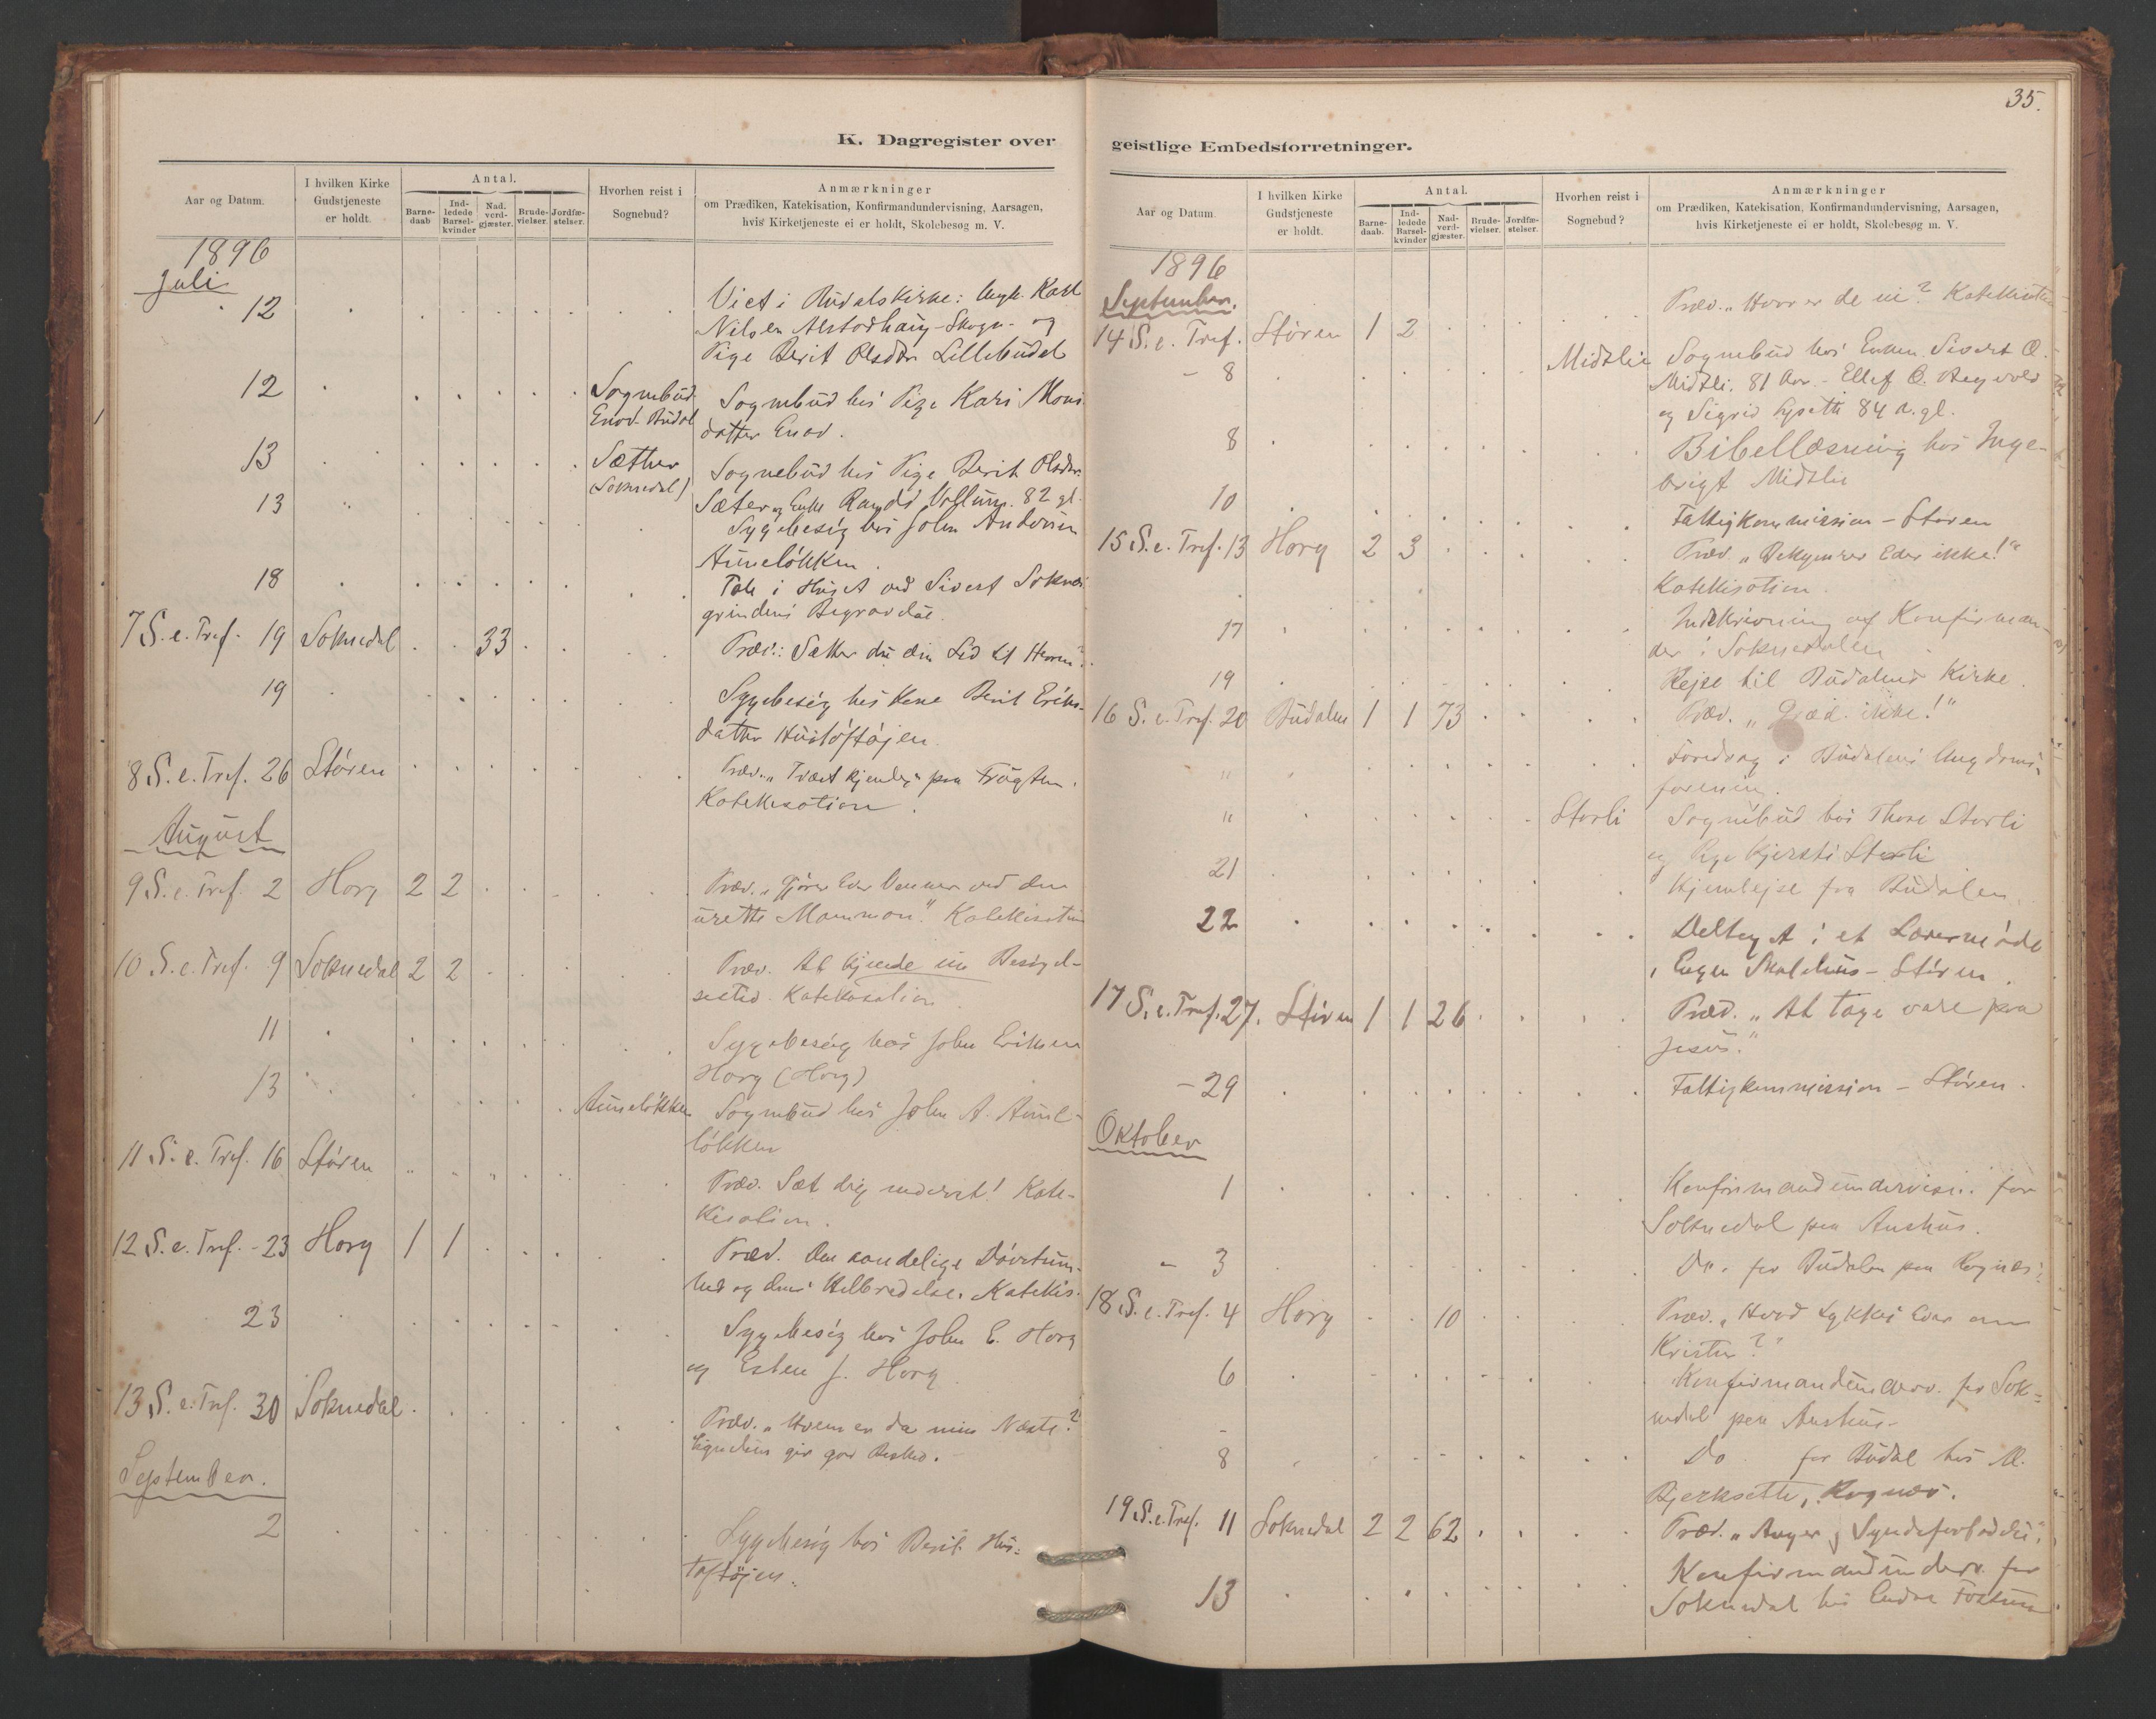 K. Dagregister over
Aar og Datum.
I hvilken Kirke Gudstjeneste er holdt.
Antal.
Barne-daab
Ind-ledede Barsel-kvinder
Nad. verd-gjæster.
Brude-vielser.
Jordfæ-stelser.
Hvorhen reist i Sognebud?
Anmærkninger
om Prædiken, Katekisation, Konfirmandundervisning, Aarsagen,
hvis Kirketjeneste ei er holdt, Skolebesøg m. V.
1896
Juli
12 Viet i Budals Kirke: Ungk. Karl
Nilsen Alstadhaug-Skogn og
Pige Berit Olsdtr Lillebudal
12 Sognebud Enod. Budal Sognebud hos Pige Kari Mons
datter Enod.
13 Sæther (Soknedal) Sognebud hos Pige Berit Olsdtr.
Sæter og Enke Randi Vollum. 82 gl.
13 Sygebesøg hos John Andersen
Auneløkken.
18 Tale i Huset ved Sivert Soknes
grindens Begravelse.
7 S. e. Tref. 19 Soknedal 33 Præd.: Sætter du din Lid til Herren?
19 Sygebesøg hos Kone Berit Eriks-
datter Hustøftøjen.
8 S. e. Tref. 26 Støren Præd. "Træet kjendes paa Frugten.
Katekisation.
August
9 S. e. Tref. 2 Horg 2 2 Præd. "Gjører Eder Venner ved den
urette Mammon." Katekisation
10 S. e. Tref. 9 Soknedal 2 2 Præd. At kjende sin Besøgel-
sestid. Katekisation
11 Sygebesøg hos John Eriksen
Horg (Horg)
13 Auneløkken Sognebud hos John A. Aune-
løkken
11 S. e. Tref. 16 Støren Præd. Sæt dig nederst! Kate-
kisation.
12 S. e. Tref. - 23 Horg 1 1 Præd. Den aandelige Døvstum-
hed og dens Helbredelse. Katekis.
23 Sygebesøg hos John E. Horg
og Esten J. Horg.
13 S. e. Tref. 30 Soknedal Præd. "Hvem er da min Næste?"
Lignelsen gir god Besked.
September.
2 Sygebesøg hos Berit Hus-
tøftøjen.
35.
geistlige Embedsforretninger.
Aar og Datum.
I hvilken Kirke Gudstjeneste er holdt.
Antal.
Barne-daab.
Ind-ledede Barsel-kvinder
Nad-verd-gjæster.
Brude-vielser.
Jordfæ-stelser.
Hvorhen reist i Sognebud?
Anmærkninger
om Prædiken, Katekisation, Konfirmandundervisning, Aarsagen,
hvis Kirketjeneste ei er holdt, Skolebesøg m. V.
1896
September.
14 S. e. Tref. Støren 1 2 Præd. "Hvor er de ni? Katekisation
- 8 Midtlie Sognebud hos Enkem. Sivert O.
Midtli. 81 Aar. - Ellef O.
og Sigrid 84 a. gl.
8 Bibellæsning hos Inge-
brigt Midtlie
10 Fattigkommission - Støren
15 S. e. Tref. 13 Horg 2 3 Præd. "Bekymrer Eder ikke!"
Katekisation.
17 Indskrivning af Konfirman-
der i Soknedalen
19 Rejse til Budalens Kirke.
16 S. e. Tref. 20 Budalen 1 1 73 Præd. "Græd ikke!"
" Foredrag i Budalens Ungdoms-
forening.
" Storli Sognebud hos Thore Storli
og Pige Kjersti Storli
21 Hjemrejse fra Budalen.
22 Deltaget i et Lærermøde
i Engen Skolehus - Støren.
17 S. e. Tref. 27. Støren 1 1 26 Præd. "At tage vare paa
Jesus."
- 29 Fattigkommission - Støren.
Oktober
1 Konfirmandundervisn. for
Soknedal paa Aushus.
- 3 Do. for Budalen paa Rognes.
18 S. e. Tref. 4 Horg 10 Præd. "Hvad tykkes Eder om
Kristus?"
6 Konfirmandunderv. for Sok-
nedal paa Aushus -
- 8 Do for Budal hos M.
Bjerksette, Rognes.
19 S. e. Tref. 11 Soknedal 2 2 62 Præd. "Anger og Syndsforladelse".
13 Konfirmandunderv. for
Soknedal hos